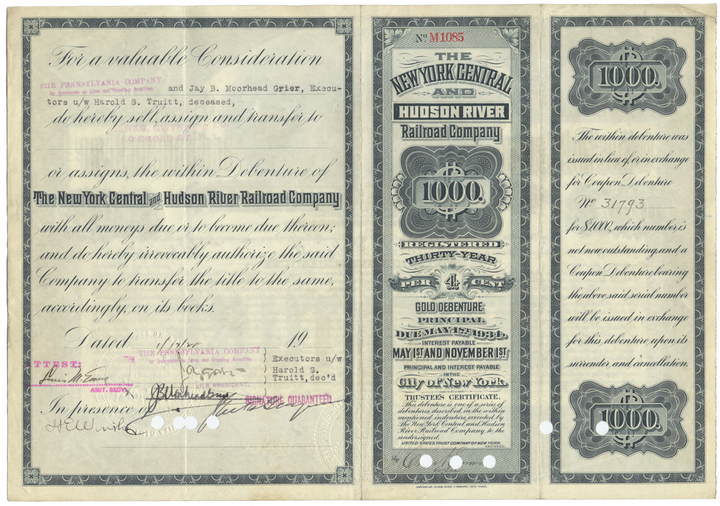 For a valuable Consideration
THE PENNSYLVANIA COMPANY
and Jay B. Moorhead Grier, Execu-
tors u/w Harold S. Truitt, deceased,
do hereby sell, assign and transfer to
or assigns, the within Debenture of
The New York Central and Hudson River Railroad Company
with all moneys due or to become due thereon;
and do hereby irrevocably authorize the said
Company to transfer the title to the same,
accordingly, on its books.
Dated 19
THE PENNSYLVANIA COMPANY
Executors u/w
Harold S.
Truitt, dec'd
TTEST:
VICE PRESIDENT
ASST. SECY.
SIGNATURE GUARANTEED
In presence of
No. M1085
THE
NEW YORK CENTRAL
AND
HUDSON RIVER
Railroad Company
1000.
REGISTERED
THIRTY-YEAR
4 PER CENT
GOLD DEBENTURE
PRINCIPAL
DUE MAY 1ST 1934.
INTEREST PAYABLE
MAY 1ST AND NOVEMBER 1ST
PRINCIPAL AND INTEREST PAYABLE
IN THE
City of New York.
TRUSTEE'S CERTIFICATE.
This debenture is one of a series of
debentures, described in the within
mentioned indenture, executed by
The New York Central and Hudson
River Railroad Company, to the
undersigned.
UNITED STATES TRUST COMPANY OF NEW YORK,
By
1000.
The within debenture was
issued in lieu of or in exchange
for Coupon Debenture
No 31793
for $1000, which number is
not now outstanding, and a
Coupon Debenture bearing
the above said serial number
will be issued in exchange
for this debenture upon its
surrender and cancellation.
1000.